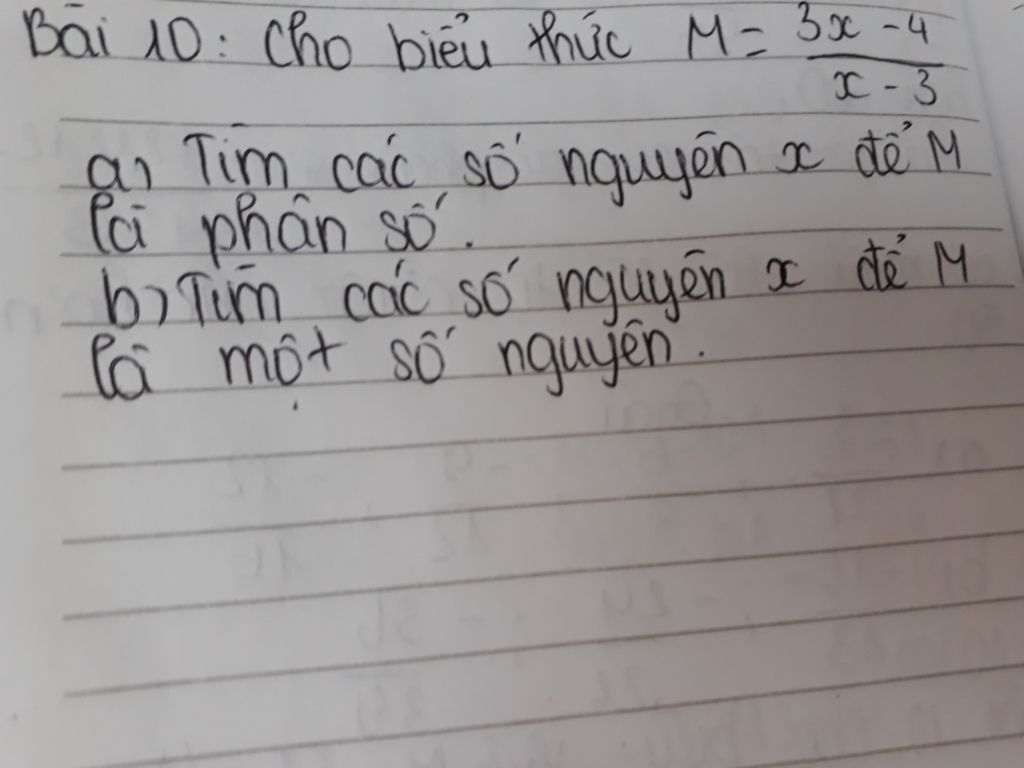 Bài 10: Cho biểu thức M = \frac{3x - 4}{x - 3}
a) Tìm các số nguyên x để M
là phân số.
b) Tìm các số nguyên x để M
là một số nguyên.